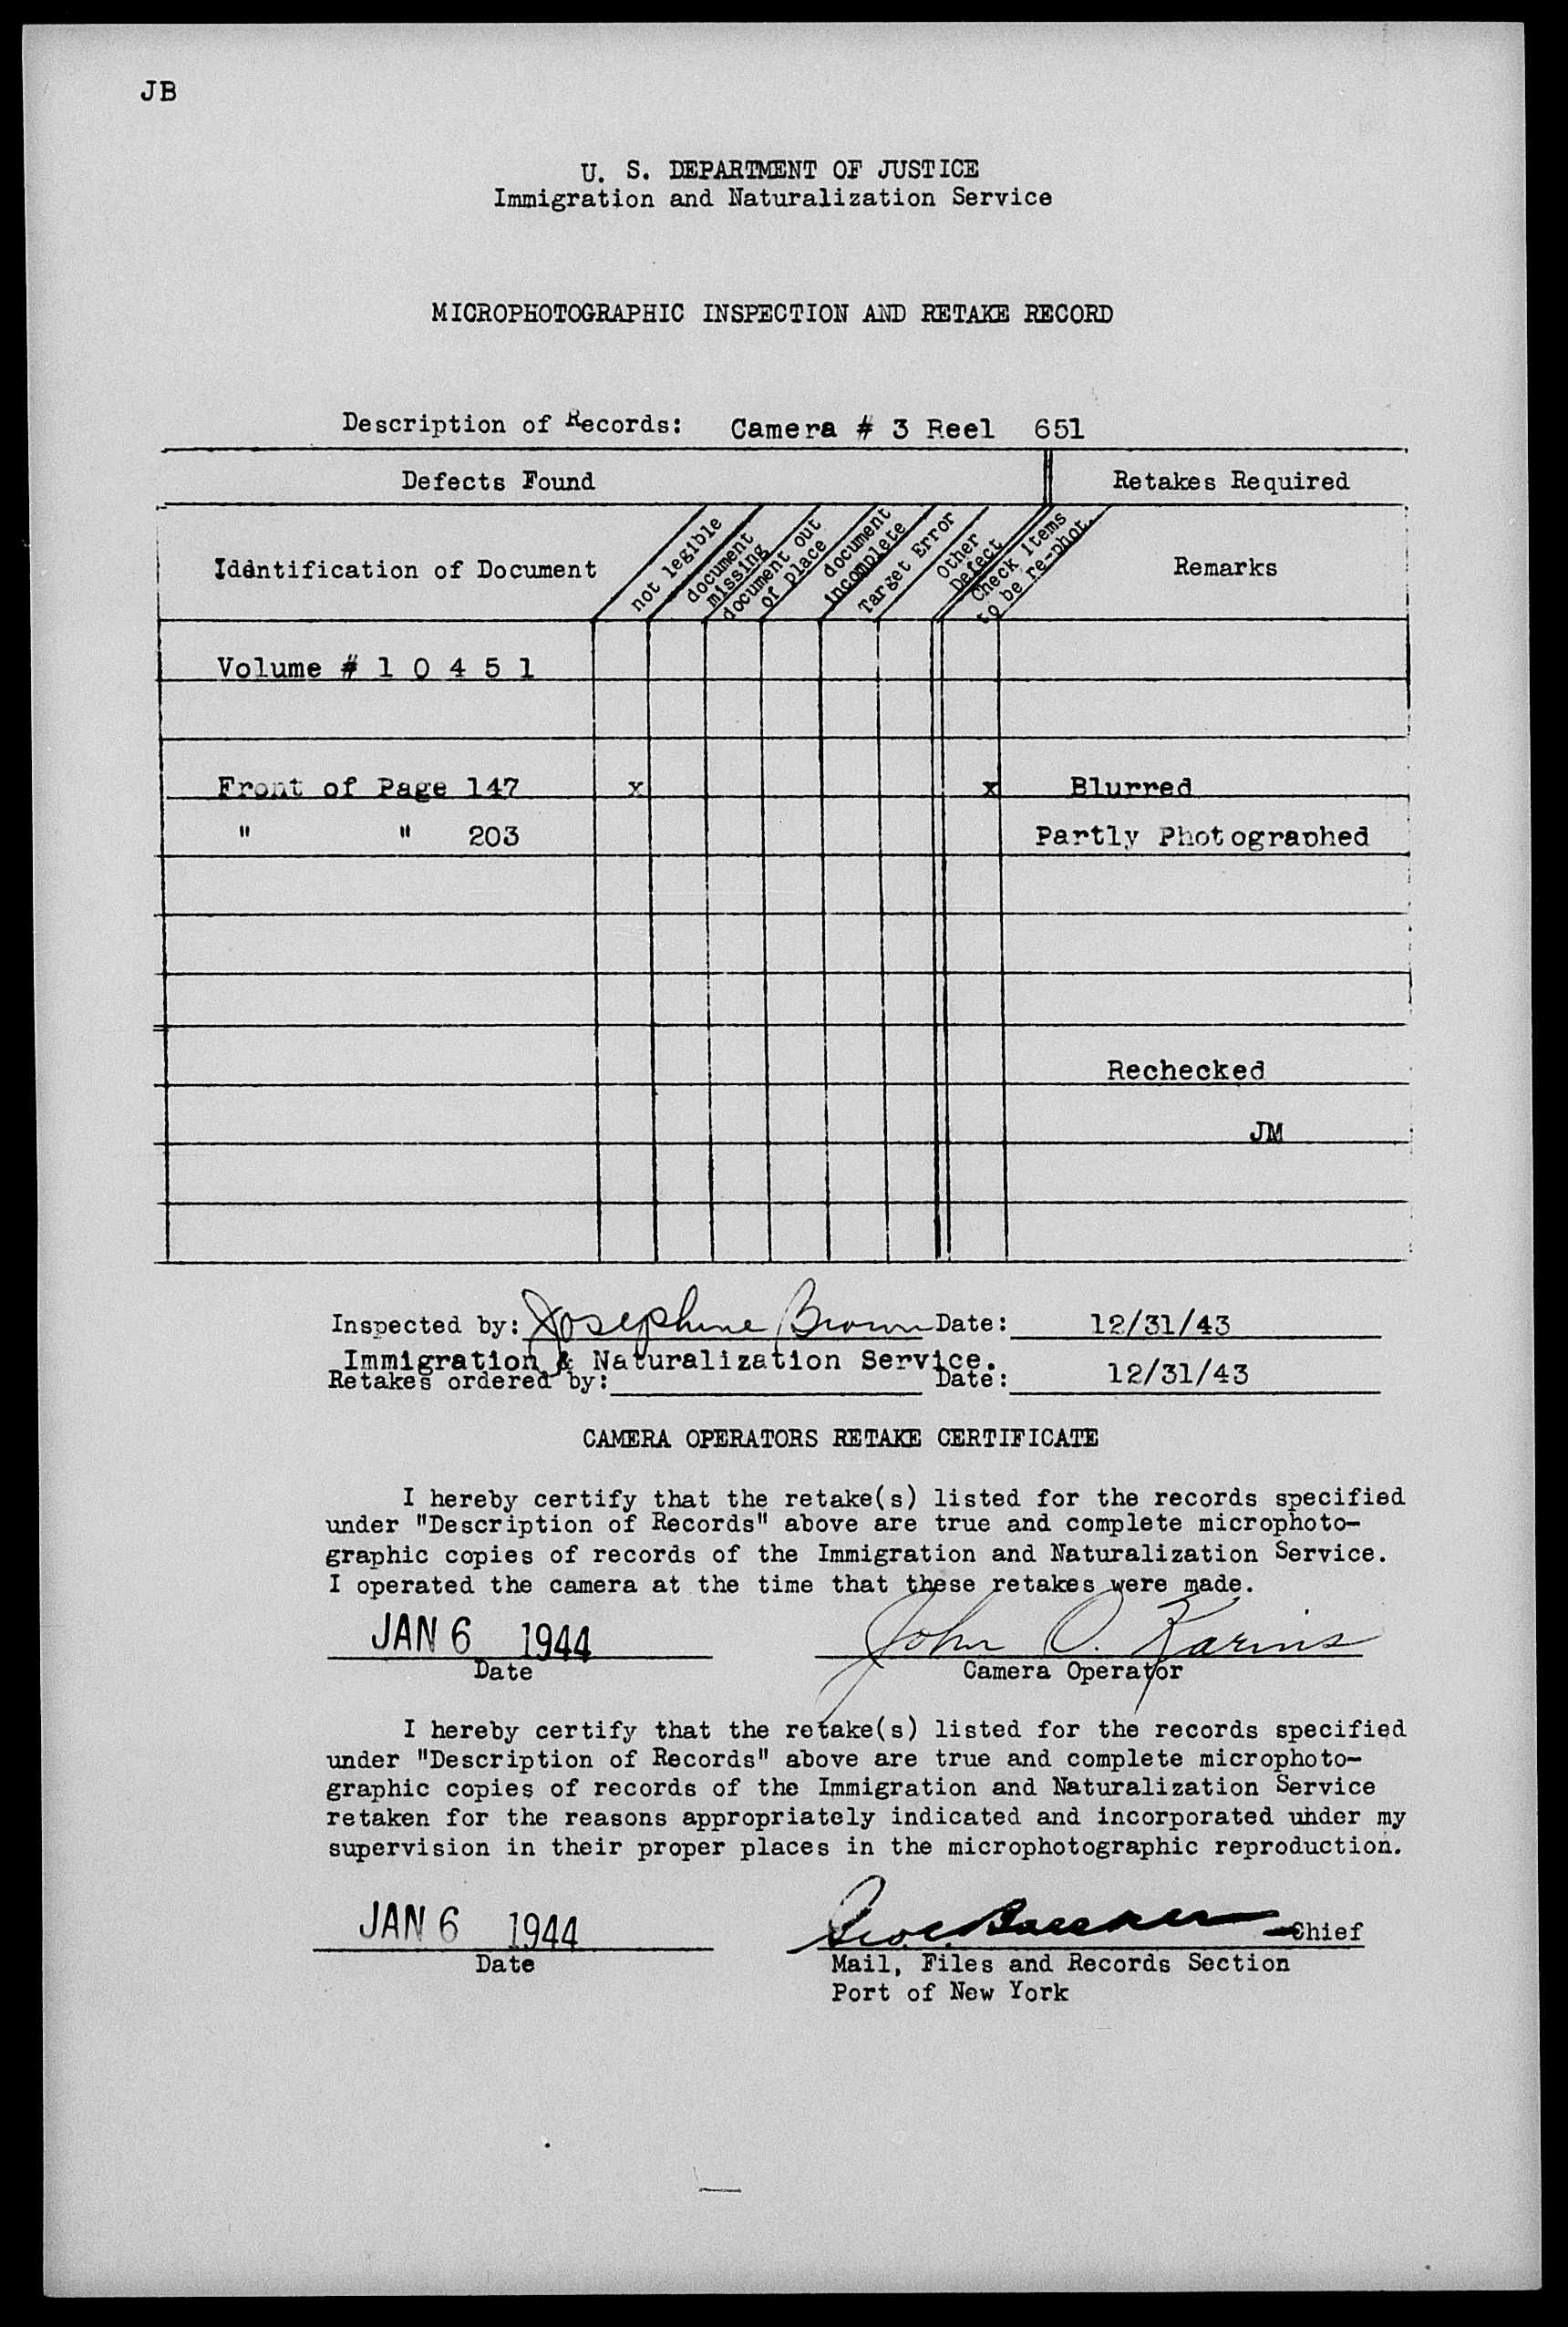 JB
U. S. DEPARTMENT OF JUSTICE
Immigration and Naturalization Service
MICROPHOTOGRAPHIC INSPECTION AND RETAKE RECORD
Description of Records: Camera # 3 Reel 651
Defects Found Retakes Required
Idantification of Document
not legible
document
missing
document out
of place
document
incomplete
Target Error
Other
Defect
Check items
to be re-phot.
Remarks
Volume # 1 0 4 5 1
Front of Page 147 x x Blurred
" " 203 Partly Photographed
Rechecked
JM
Inspected by: Josephine Brown Date: 12/31/43
Immigration & Naturalization Service.
Retakes ordered by: Date: 12/31/43
CAMERA OPERATORS RETAKE CERTIFICATE
I hereby certify that the retake(s) listed for the records specified
under "Description of Records" above are true and complete microphoto-
graphic copies of records of the Immigration and Naturalization Service.
I operated the camera at the time that these retakes were made.
JAN 6 1944 John O. Karins
Date Camera Operator
I hereby certify that the retake(s) listed for the records specified
under "Description of Records" above are true and complete microphoto-
graphic copies of records of the Immigration and Naturalization Service
retaken for the reasons appropriately indicated and incorporated under my
supervision in their proper places in the microphotographic reproduction.
JAN 6 1944 Chief
Date Mail, Files and Records Section
Port of New York